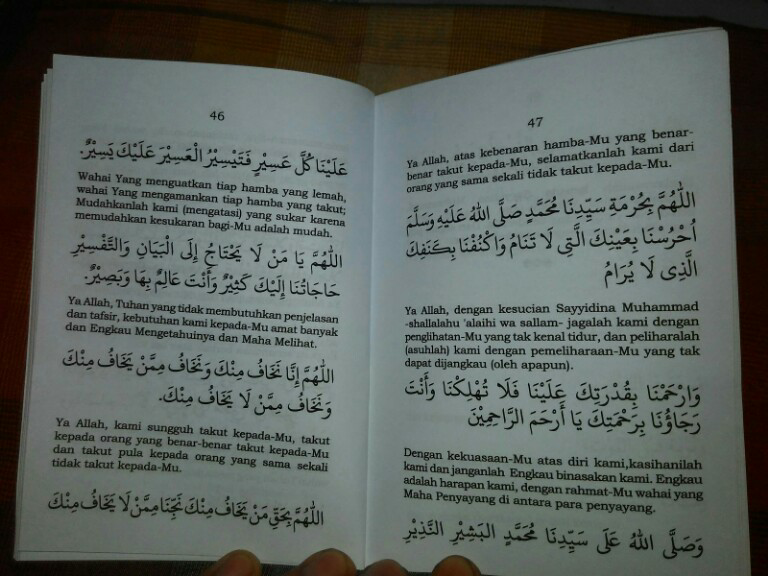 46
عَلَيْنَا كُلَّ عَسِيْرٍ فَتَيْسِيْرُ الْعَسِيْرِ عَلَيْكَ يَسِيْرٌ.
Wahai Yang menguatkan tiap hamba yang lemah,
wahai Yang mengamankan tiap hamba yang takut;
Mudahkanlah kami (mengatasi) yang sukar karena
memudahkan kesukaran bagi-Mu adalah mudah.
اَللّٰهُمَّ يَا مَنْ لَا يَحْتَاجُ إِلَى الْبَيَانِ وَالتَّفْسِيْرِ
حَاجَاتُنَا إِلَيْكَ كَثِيْرٌ وَأَنْتَ عَالِمٌ بِهَا وَبَصِيْرٌ.
Ya Allah, Tuhan yang tidak membutuhkan penjelasan
dan tafsir, kebutuhan kami kepada-Mu amat banyak
dan Engkau Mengetahuinya dan Maha Melihat.
اَللّٰهُمَّ إِنَّا نَخَافُ مِنْكَ وَنَخَافُ مِمَّنْ يَخَافُ مِنْكَ
وَنَخَافُ مِمَّنْ لَا يَخَافُ مِنْكَ.
Ya Allah, kami sungguh takut kepada-Mu, takut
kepada orang yang benar-benar takut kepada-Mu
dan takut pula kepada orang yang sama sekali
tidak takut kepada-Mu.
اَللّٰهُمَّ بِحَقِّ مَنْ يَخَافُ مِنْكَ نَجِّنَا مِمَّنْ لَا يَخَافُ مِنْكَ
47
Ya Allah, atas kebenaran hamba-Mu yang benar-
benar takut kepada-Mu, selamatkanlah kami dari
orang yang sama sekali tidak takut kepada-Mu.
اَللّٰهُمَّ بِحُرْمَةِ سَيِّدِنَا مُحَمَّدٍ صَلَّى اللهُ عَلَيْهِ وَسَلَّمَ
اُحْرُسْنَا بِعَيْنِكَ الَّتِى لَا تَنَامُ وَاكْنُفْنَا بِكَنَفِكَ
الَّذِى لَا يُرَامُ
Ya Allah, dengan kesucian Sayyidina Muhammad
-shallalahu 'alaihi wa sallam- jagalah kami dengan
penglihatan-Mu yang tak kenal tidur, dan peliharalah
(asuhlah) kami dengan pemeliharaan-Mu yang tak
dapat dijangkau (oleh apapun).
وَارْحَمْنَا بِقُدْرَتِكَ عَلَيْنَا فَلَا تُهْلِكْنَا وَأَنْتَ
رَجَاؤُنَا بِرَحْمَتِكَ يَا أَرْحَمَ الرَّاحِمِيْنَ
Dengan kekuasaan-Mu atas diri kami,kasihanilah
kami dan janganlah Engkau binasakan kami. Engkau
adalah harapan kami, dengan rahmat-Mu wahai yang
Maha Penyayang di antara para penyayang.
وَصَلَّى اللهُ عَلَى سَيِّدِنَا مُحَمَّدٍ الْبَشِيْرِ النَّذِيْرِ